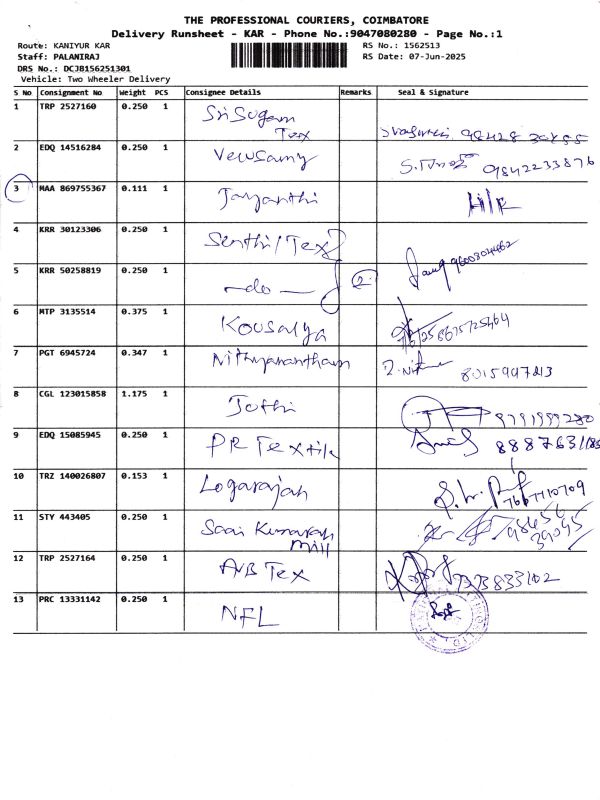 THE PROFESSIONAL COURIERS, COIMBATORE
Delivery Runsheet - KAR - Phone No.:9047080280 - Page No.:1
Route: KANIYUR KAR RS No.: 1562513
Staff: PALANIRAJ RS Date: 07-Jun-2025
DRS No.: DCJ8156251301
Vehicle: Two Wheeler Delivery
S No Consignment No Weight PCS Consignee Details Remarks Seal & Signature
1 TRP 2527160 0.250 1 Sri Sugam
Tex 98428 30455
2 EDQ 14516284 0.250 1 Velusamy 9842233876
3 MAA 869755367 0.111 1 Jayanthi
4 KRR 30123306 0.250 1 Senthil Tex 9600804462
5 KRR 50258819 0.250 1 -do- 2
6 MTP 3135514 0.375 1 Kousalya
7 PGT 6945724 0.347 1 Nithyanantham
8 CGL 123015858 1.175 1 Jothi 9791999280
9 EDQ 15085945 0.250 1 PR Textile
10 TRZ 140026807 0.153 1 Logarajah
11 STY 443405 0.250 1 Saai Kumaran
mill
12 TRP 2527164 0.250 1 AVB Tex
13 PRC 13331142 0.250 1 NFL